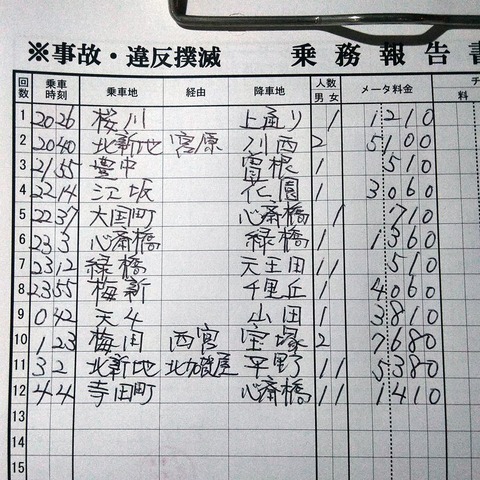 ※事故・違反撲滅 乗務報告書
回数 乗車時刻 乗車地 経由 降車地 人数 男 女 メータ料金 チ 料
1 20 26 桜川 上通り 1 1210
2 20 40 北新地 宮原 川西 2 5100
3 21 55 豊中 曽根 1 510
4 22 14 江坂 花園 1 3060
5 22 37 大国町 心斎橋 1 710
6 23 3 心斎橋 緑橋 1 1360
7 23 12 緑橋 天王田 1 1 510
8 23 55 梅新 千里丘 1 4060
9 0 42 天4 山田 1 3810
10 1 23 梅田 西宮 宝塚 2 7680
11 3 2 北新地 北加賀屋 平野 1 1 5380
12 4 4 寺田町 心斎橋 1 1 1410
13
14
15